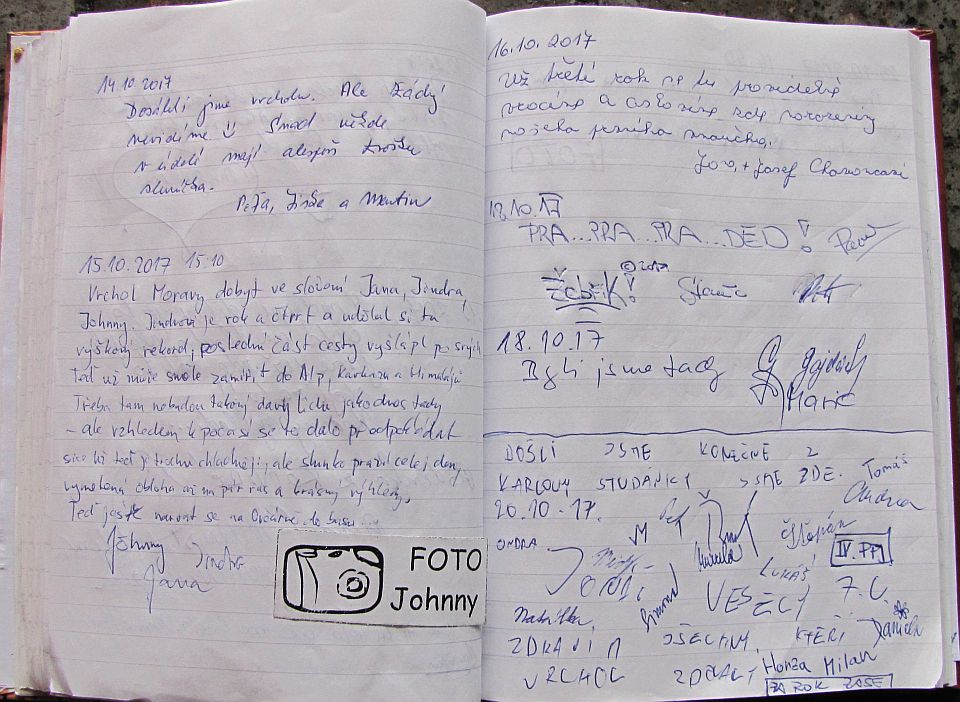 14.10.2017
Dosáhli jsme vrcholu. Ale žádný
nevidíme Snad někde
v údolí mají alespoň trošku
sluníčka.
Péťa, a Martin
15.10.2017 15:10
Vrchol Moravy dobyt ve složení Jana, Jindra,
Johnny. Jindrovi je rok a čtvrt a udělal si tu
výškový rekord, poslední část cesty vyšlápl po svých
Teď už může směle zamířit do Alp, Kavkazu a Himalájů
Třeba tam nebudou takový davy lidu jako dnes tady
- ale vzhledem k počasí se to dalo předpokládat
sice už teď je trochu chladněji, ale slunko pražilo celej den,
vymetená obloha až na pár řas a krásný výhledy.
Teď ještě na Ovčárnu do busu
Johnny Jindra
Jana
FOTO
Johnny
16.10.2017
Už třetí rok se tu pravidelně
vracíme a oslavíme zde narozeniny
našeho prvního vnoučka.
Josef
18.10.17
PRA...PRA...PRA...DĚD!
Žebřík! © 2017
18.10.17
Byli jsme tady
Marie
DOŠLI JSME KONEČNĚ Z
KARLOVY STUDÁNKY JSME ZDE. Tomáš
20.10.17. Andrea
ONDRA Štěpán IV. PP
LUKÁŠ 7.C.
VESELÝ
ZDRAVÍM VŠECHNY, KTEŘÍ
VRCHOL ZDOLALI Honza Milan
ZA ROK ZASE